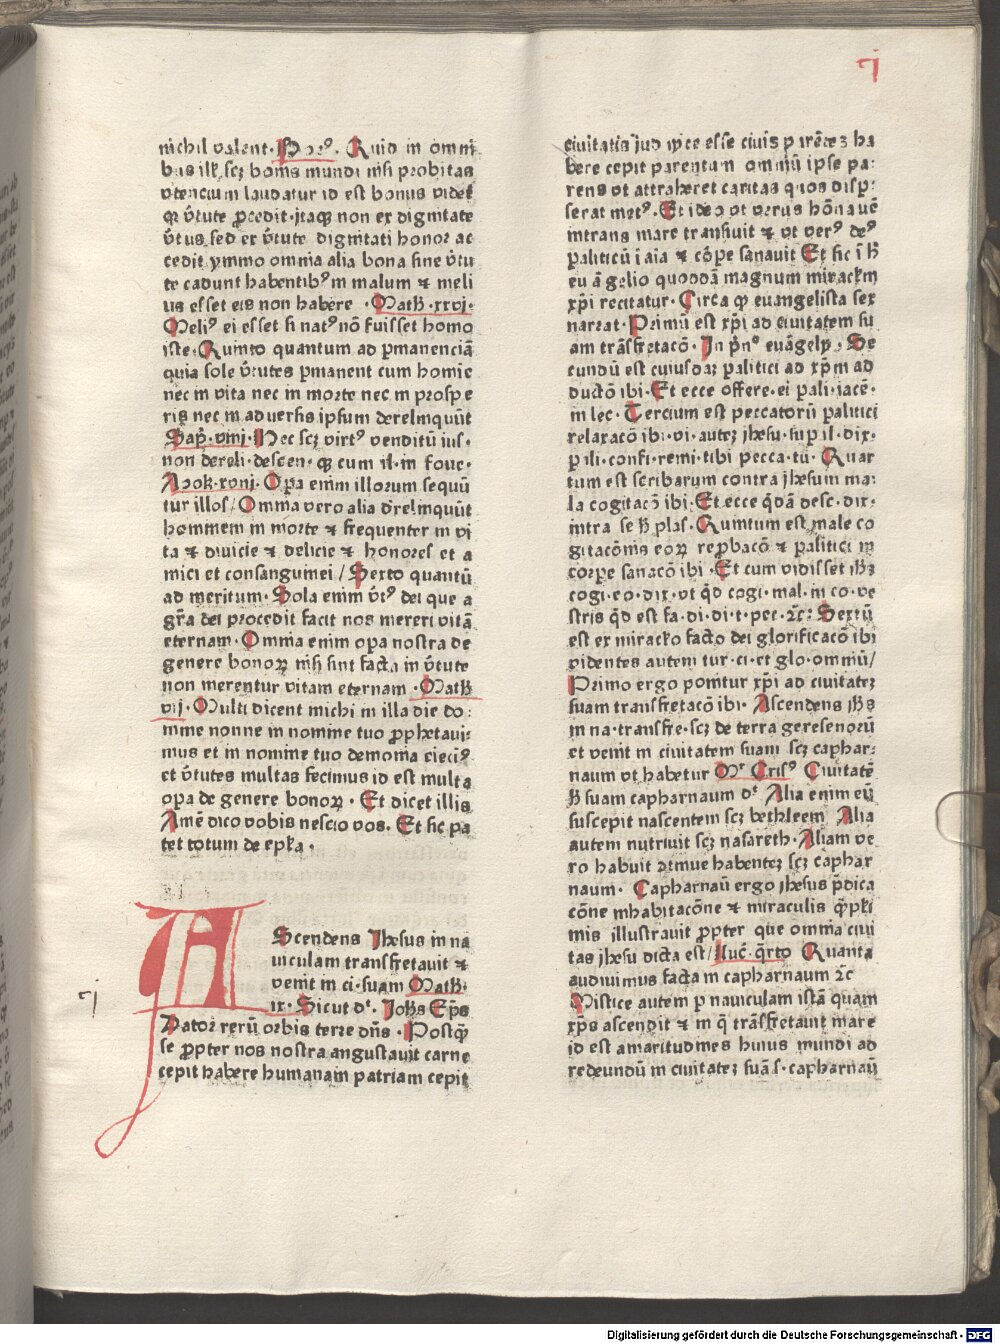 ꝯj
nichil valent · Hoꝛꝰ. Quīo in omni
bus illꝭ scꝫ bonis mundi nisi probitas
vtencium laudatur id est bonus videt̄
qꝛ v̄tute ꝓcedit · itaqꝫ non ex dignitate
v̄tus sed ex v̄tute dignitati honor ac
cedit ymmo omnia alia bona sine v̄tu
te cadunt habentibꝰ in malum ⁊ meli
us esset eis non habere · Math̄ · xxvj ·
Meliꝰ ei esset si natꝰ nō fuisset homo
iste · Quinto quantum ad ꝑmanenciā
quia sole v̄tutes ꝑmanent cum homīe
nec in vita nec in morte nec in prospe
ris nec in aduersis ipsum derelinquūt
Sap̄ · viiij · Hec scꝫ virtꝰ venditū ius ·
non dereli · descen · qꝫ cum il · in fouē ·
Apok̄ · xviij · Opa enim illorum sequū
tur illos / Omnia vero alia d̄relinquūt
hominem in morte ⁊ frequenter in vi
ta ⁊ diuicie ⁊ delicie ⁊ honores et a
mici et consanguinei / Sexto quantū
ad meritum · Sola enim v̄tꝰ dei que a
gr̄a dei procedit facit nos mereri vitā
eternam · Omnia enim opa nostra de
genere bonoꝝ nisi sint facta in v̄tute
non merentur vitam eternam · Math̄
vij · Multi dicent michi in illa die do:
mine nonne in nomine tuo ꝓphetaui:
mus et in nomine tuo demonia eiecimꝰ
et v̄tutes multas fecimus id est multa
opa de genere bonoꝝ · Et dicet illis
Amē dico vobis nescio vos · Et sic pa
tet totum de epl̄a ·
AScendens Jhesus in na
uiculam transfretauit ⁊
venit in ci · suam Math̄ ·
ix · Sicut dt̄ · Joh̄s Ep̄s
ꝯj
Pator rerū orbis terre dn̄s · Postqꝫ
se ꝓpter nos nostra angustauit carne
cepit habere humanam patriam cepit
ciuitatis iud ip̄ce esse ciuis parētez ha
bere cepit parentum omniū ipse pa:
rens vt attraheret caritas quos disꝑ:
serat metꝰ. Et ideo vt verus hō nauē
intrans mare transiuit ⁊ vt verꝰ deꝰ
paliticū ī aīa ⁊ corꝑe sanauit Et sic ī h̄
euāgelio quoddā magnum miraclm̄
xp̄i recitatur · Circa qꝫ euangelista sex
narrat · Primū est xp̄i ad ciuitatem su
am trāsfretacō · Jn prīnꝰ euāgely · Se
cundū est cuiusdaꝫ palitici ad xp̄m ad
ductō ibi · Et ecce offere · ei pali · iacē ·
in lec · Tercium est peccatorū palitici
relaxacō ibi · vi · auteꝫ jhesu · sup il · dix ·
pili · confi · remi · tibi pecca · tu · Quar
tum est scribarum contra jhesum ma:
la cogitacō ibi · Et ecce qd̄ā desc · dix ·
intra se h̄ plas · Quintum est male co
gitacōnis eoꝝ rep̄bacō ⁊ palitici in
corpe sanacō ibi · Et cum vidisset ih̄s
cogi · eo · dix · vt qd̄ cogi · mal · in co · ve
stris qd̄ est fa · di · di · t · pec · ⁊c: Sextū
est ex miraclo facto dei glorificacō ibi
videntes autem tur · ci · et glo · omniū /
Primo ergo ponitur xp̄i ad ciuitateꝫ
suam transfretacō ibi · Ascendens ih̄s
in na · transfre · scꝫ de terra geresenorū
et venit in ciuitatem suam scꝫ caphar:
naum vt habetur Mr̄ Crisꝰ Ciuitatē
h̄ suam capharnaum dt̄ Alia enim eū
suscepit nascentem scꝫ bethleem Alia
autem nutriuit scꝫ nasareth · Aliam ve
ro habuit ⁊tinue habenteꝫ scꝫ caphar
naum · Capharnaū ergo jhesus p̄dica
cōne inhabitacōne ⁊ miraculis qꝫpl̄i
mis illustrauit ꝓpter que omnia ciui
tas jhesu dicta est / Luc̄ · qr̄to Quanta
audiuimus facta in capharnaum ⁊c
Mistice autem p nauiculam istā quam
xp̄s ascendit ⁊ in q̄ trāsfretauit mare
id est amaritudines huius mundi ad
redeundū in ciuitateꝫ suā s · capharnaū
Digitalisierung gefördert durch die Deutsche Forschungsgemeinschaft - DFG